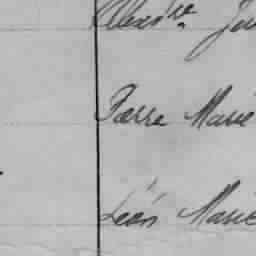 Alexdre
Pierre Marie
Léon Marie